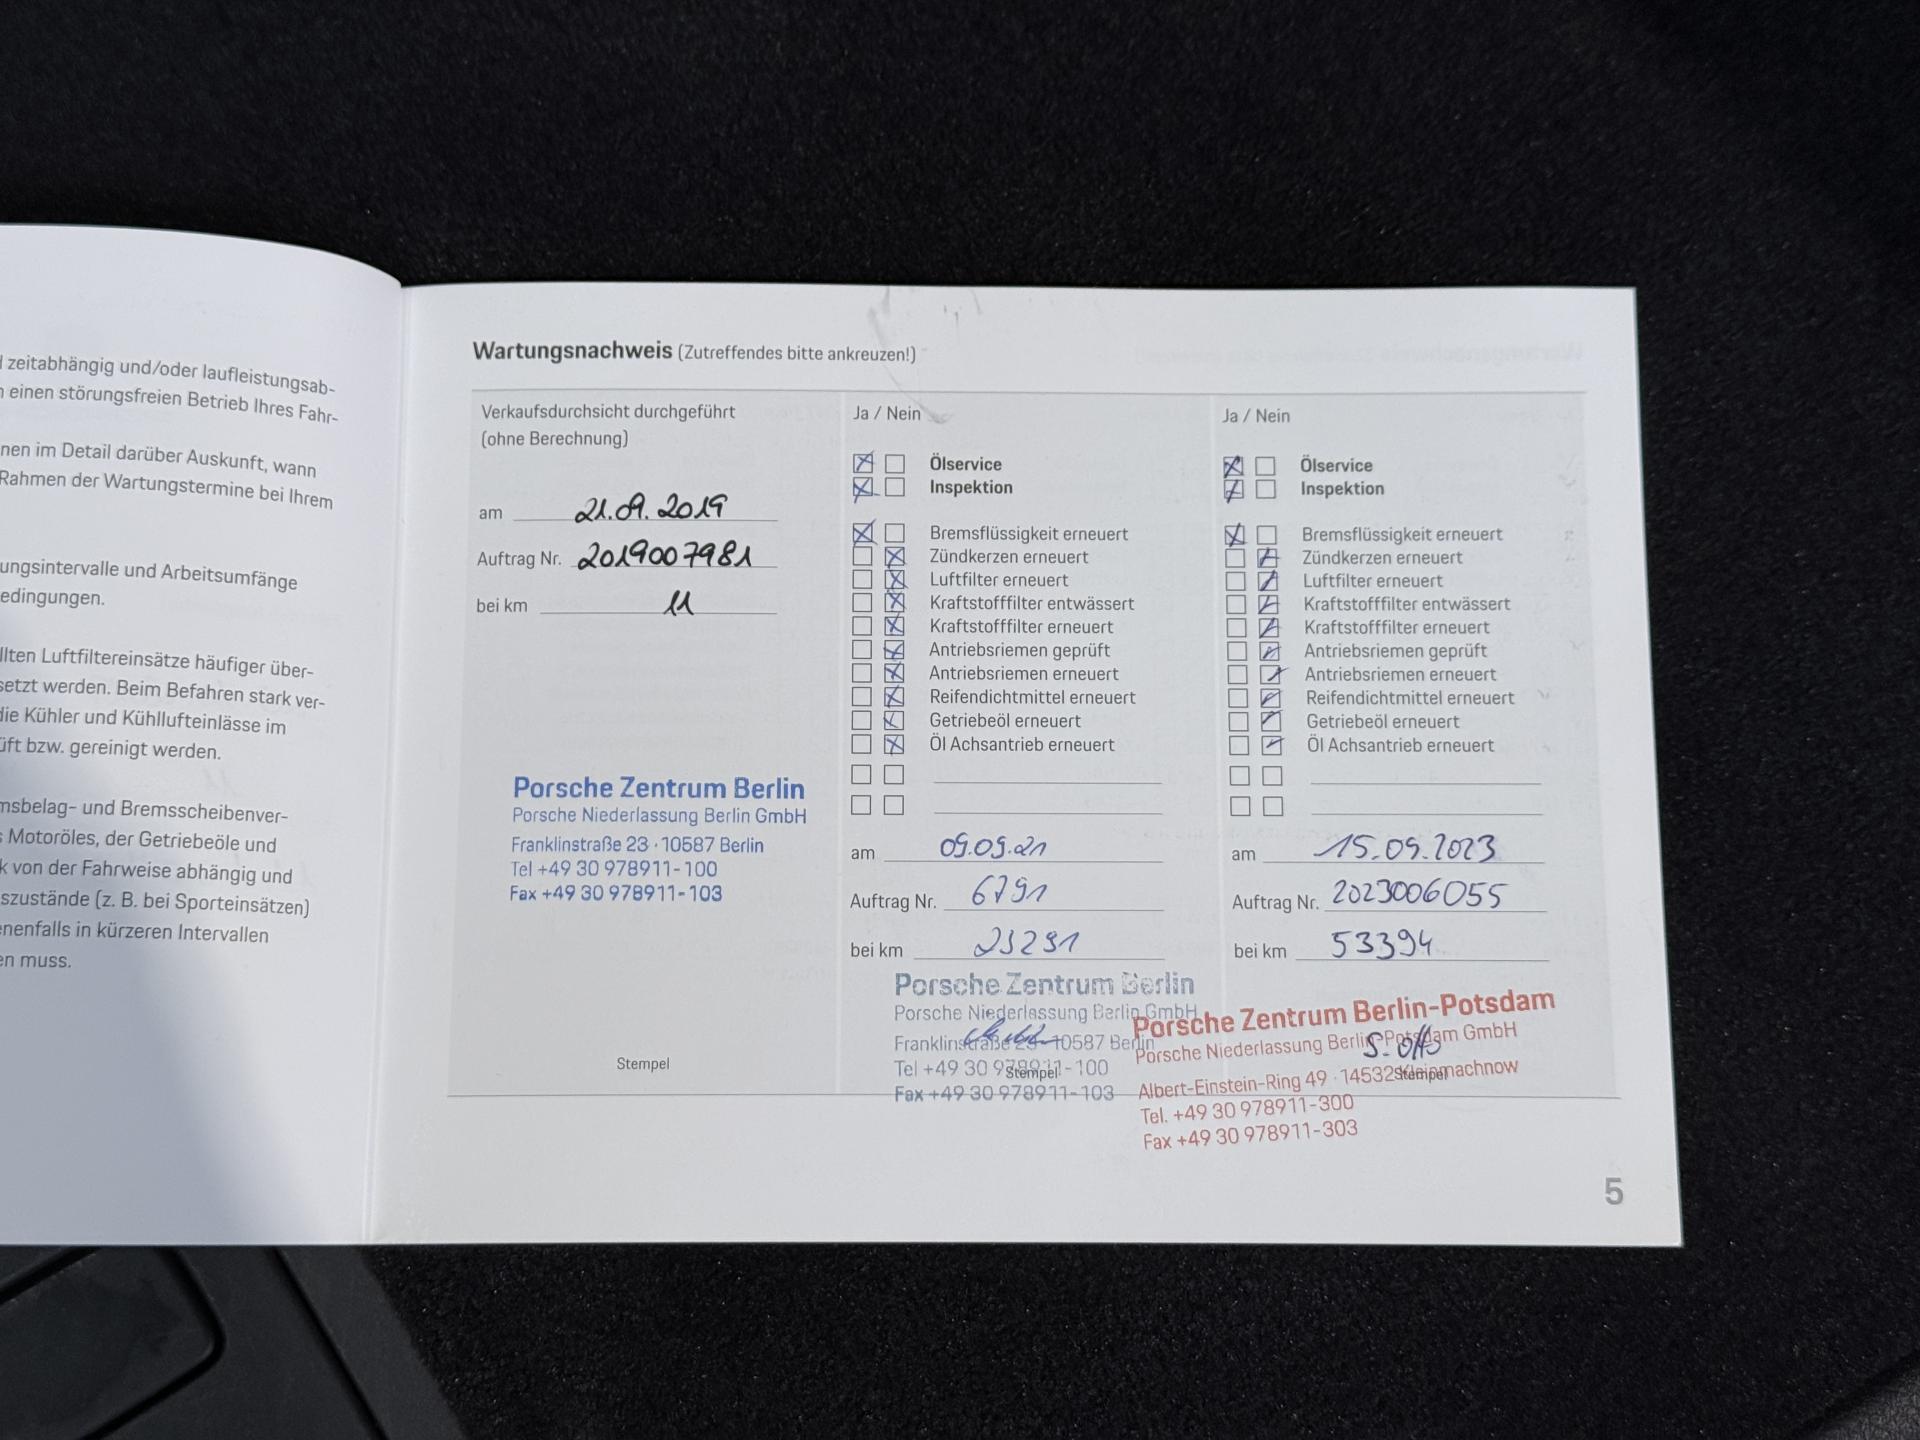 zeitabhängig und/oder laufleistungsab-
einen störungsfreien Betrieb Ihres Fahr-
nen im Detail darüber Auskunft, wann
Rahmen der Wartungstermine bei Ihrem
ungsintervalle und Arbeitsumfänge
edingungen.
llten Luftfiltereinsätze häufiger über-
setzt werden. Beim Befahren stark ver-
die Kühler und Kühllufteinlässe im
üft bzw. gereinigt werden.
msbelag- und Bremsscheibenver-
s Motoröles, der Getriebeöle und
k von der Fahrweise abhängig und
szustände (z. B. bei Sporteinsätzen)
enenfalls in kürzeren Intervallen
en muss.
Wartungsnachweis (Zutreffendes bitte ankreuzen!)
Verkaufsdurchsicht durchgeführt
(ohne Berechnung)
am 21.09.2019
Auftrag Nr. 2019007981
bei km 11
Porsche Zentrum Berlin
Porsche Niederlassung Berlin GmbH
Franklinstraße 23 · 10587 Berlin
Tel +49 30 978911-100
Fax +49 30 978911-103
Stempel
Ja / Nein
Ölservice
Inspektion
Bremsflüssigkeit erneuert
Zündkerzen erneuert
Luftfilter erneuert
Kraftstofffilter entwässert
Kraftstofffilter erneuert
Antriebsriemen geprüft
Antriebsriemen erneuert
Reifendichtmittel erneuert
Getriebeöl erneuert
Öl Achsantrieb erneuert
am 09.09.21
Auftrag Nr. 6791
bei km
Porsche Zentrum Berlin
Porsche Niederlassung Berlin GmbH
Franklinstraße 23 · 10587 Berlin
Tel +49 30 978911-100
Stempel
Fax +49 30 978911-103
Ja / Nein
Ölservice
Inspektion
Bremsflüssigkeit erneuert
Zündkerzen erneuert
Luftfilter erneuert
Kraftstofffilter entwässert
Kraftstofffilter erneuert
Antriebsriemen geprüft
Antriebsriemen erneuert
Reifendichtmittel erneuert
Getriebeöl erneuert
Öl Achsantrieb erneuert
am 15.09.2023
Auftrag Nr. 2023006055
bei km 53394
Porsche Zentrum Berlin-Potsdam
Porsche Niederlassung Berlin-Potsdam GmbH
S. Otto
Albert-Einstein-Ring 49 · 14532 Kleinmachnow
Stempel
Tel. +49 30 978911-300
Fax +49 30 978911-303
5